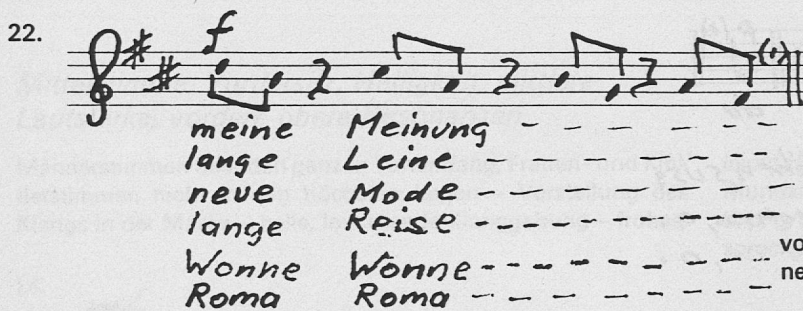 22.
f
meine Meinung - - - - - -
lange Leine - - - - - -
neue Mode - - - - - -
lange Reise - - - - - -
Wonne Wonne - - - - - - - vo
Roma Roma - - - - - - ne